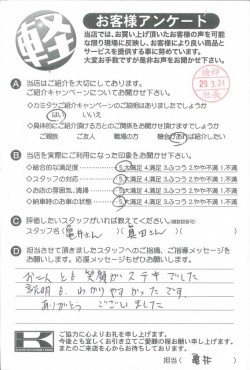 軽
お客様アンケート
当店では、お買い上げ頂いたお客様の声を可能な
限り現場に反映し、お客様により良い商品と
サービスを提供する事に努めています。
大変お手数ですが是非お声をお聞かせ下さい。
29.3.24
A 当店はご紹介を大切にしております。
ご紹介キャンペーンについてお聞かせ下さい。
◇カミタケご紹介キャンペーンのご説明はありましたでしょうか
はい いいえ
◇具体的にご紹介頂ける方とのご関係をお聞かせ頂けますでしょうか
ご親族 ご友人 職場の方 機会があれば紹介したい
B 当店を実際にご利用になった印象をお聞かせ下さい。
◇総合的な満足度 5.大満足 4.満足 3.ふつう 2.やや不満 1.不満
◇スタッフの対応 5.大満足 4.満足 3.ふつう 2.やや不満 1.不満
◇お店の雰囲気、清掃 5.大満足 4.満足 3.ふつう 2.やや不満 1.不満
◇納車時のお車の状態 5.大満足 4.満足 3.ふつう 2.やや不満 1.不満
C 評価したいスタッフがいれば教えて下さい。
スタッフ名(亀井さん)(真田さん)
D 担当させて頂きましたスタッフへのご指摘、ご指導メッセージを
お聞かせ下さい。応援メッセージもぜひお願いします。
笑顔がステキでした
説明も、わかりやすかったです。
ありがとう ございました
K
ご協力に心よりお礼を申し上げます。
今後とも宜しくお引き立てご愛顧の程お願い申し上げます。
またのご来店を心からお待ちしております。
担当( 亀井 )